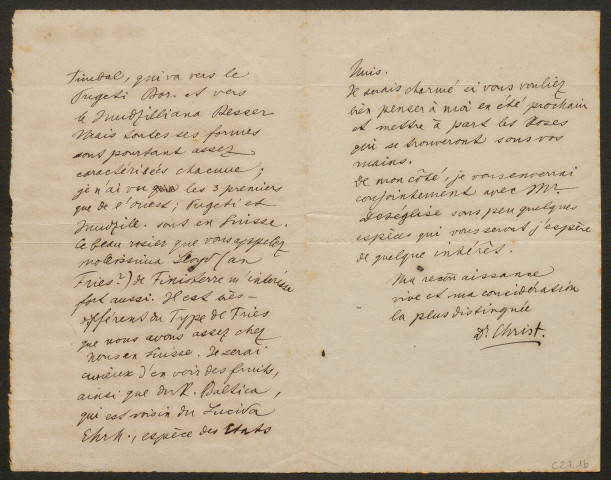 Timbal, qui va vers le
Pugeti Bor. et vers
la Jundzilliana Besser
Mais toutes ses formes
sont pourtant assez
caractérisées chacune ;
je n'ai vu les 3 premiers
que de l'ouest ; Pugeti et
Jundzill. sont en Suisse.
Le beau rosier que vous appelez
mollissima Lloyd (an
Fries ?) de Finisterre m'intéresse
fort aussi. Il est très-
différent du Type de Fries
que nous avons assez chez
nous en Suisse. Je serai
curieux d'en voir des fruits,
ainsi que du R. Baltica,
qui est voisin du Lucida
Ehrh., espèce des Etats
Unis.
Je serais charmé si vous vouliez
bien penser à moi en été prochain
et mettre à part les Roses
qui se trouveront sous vos
mains.
De mon côté, je vous enverrai
conjointement avec Mr
Déséglise sous peu quelques
espèces qui vous seront j'espère
de quelque intérêt.
Ma reconnaissance
vive et ma considération
la plus distinguée
Dr Christ.
C27.1b